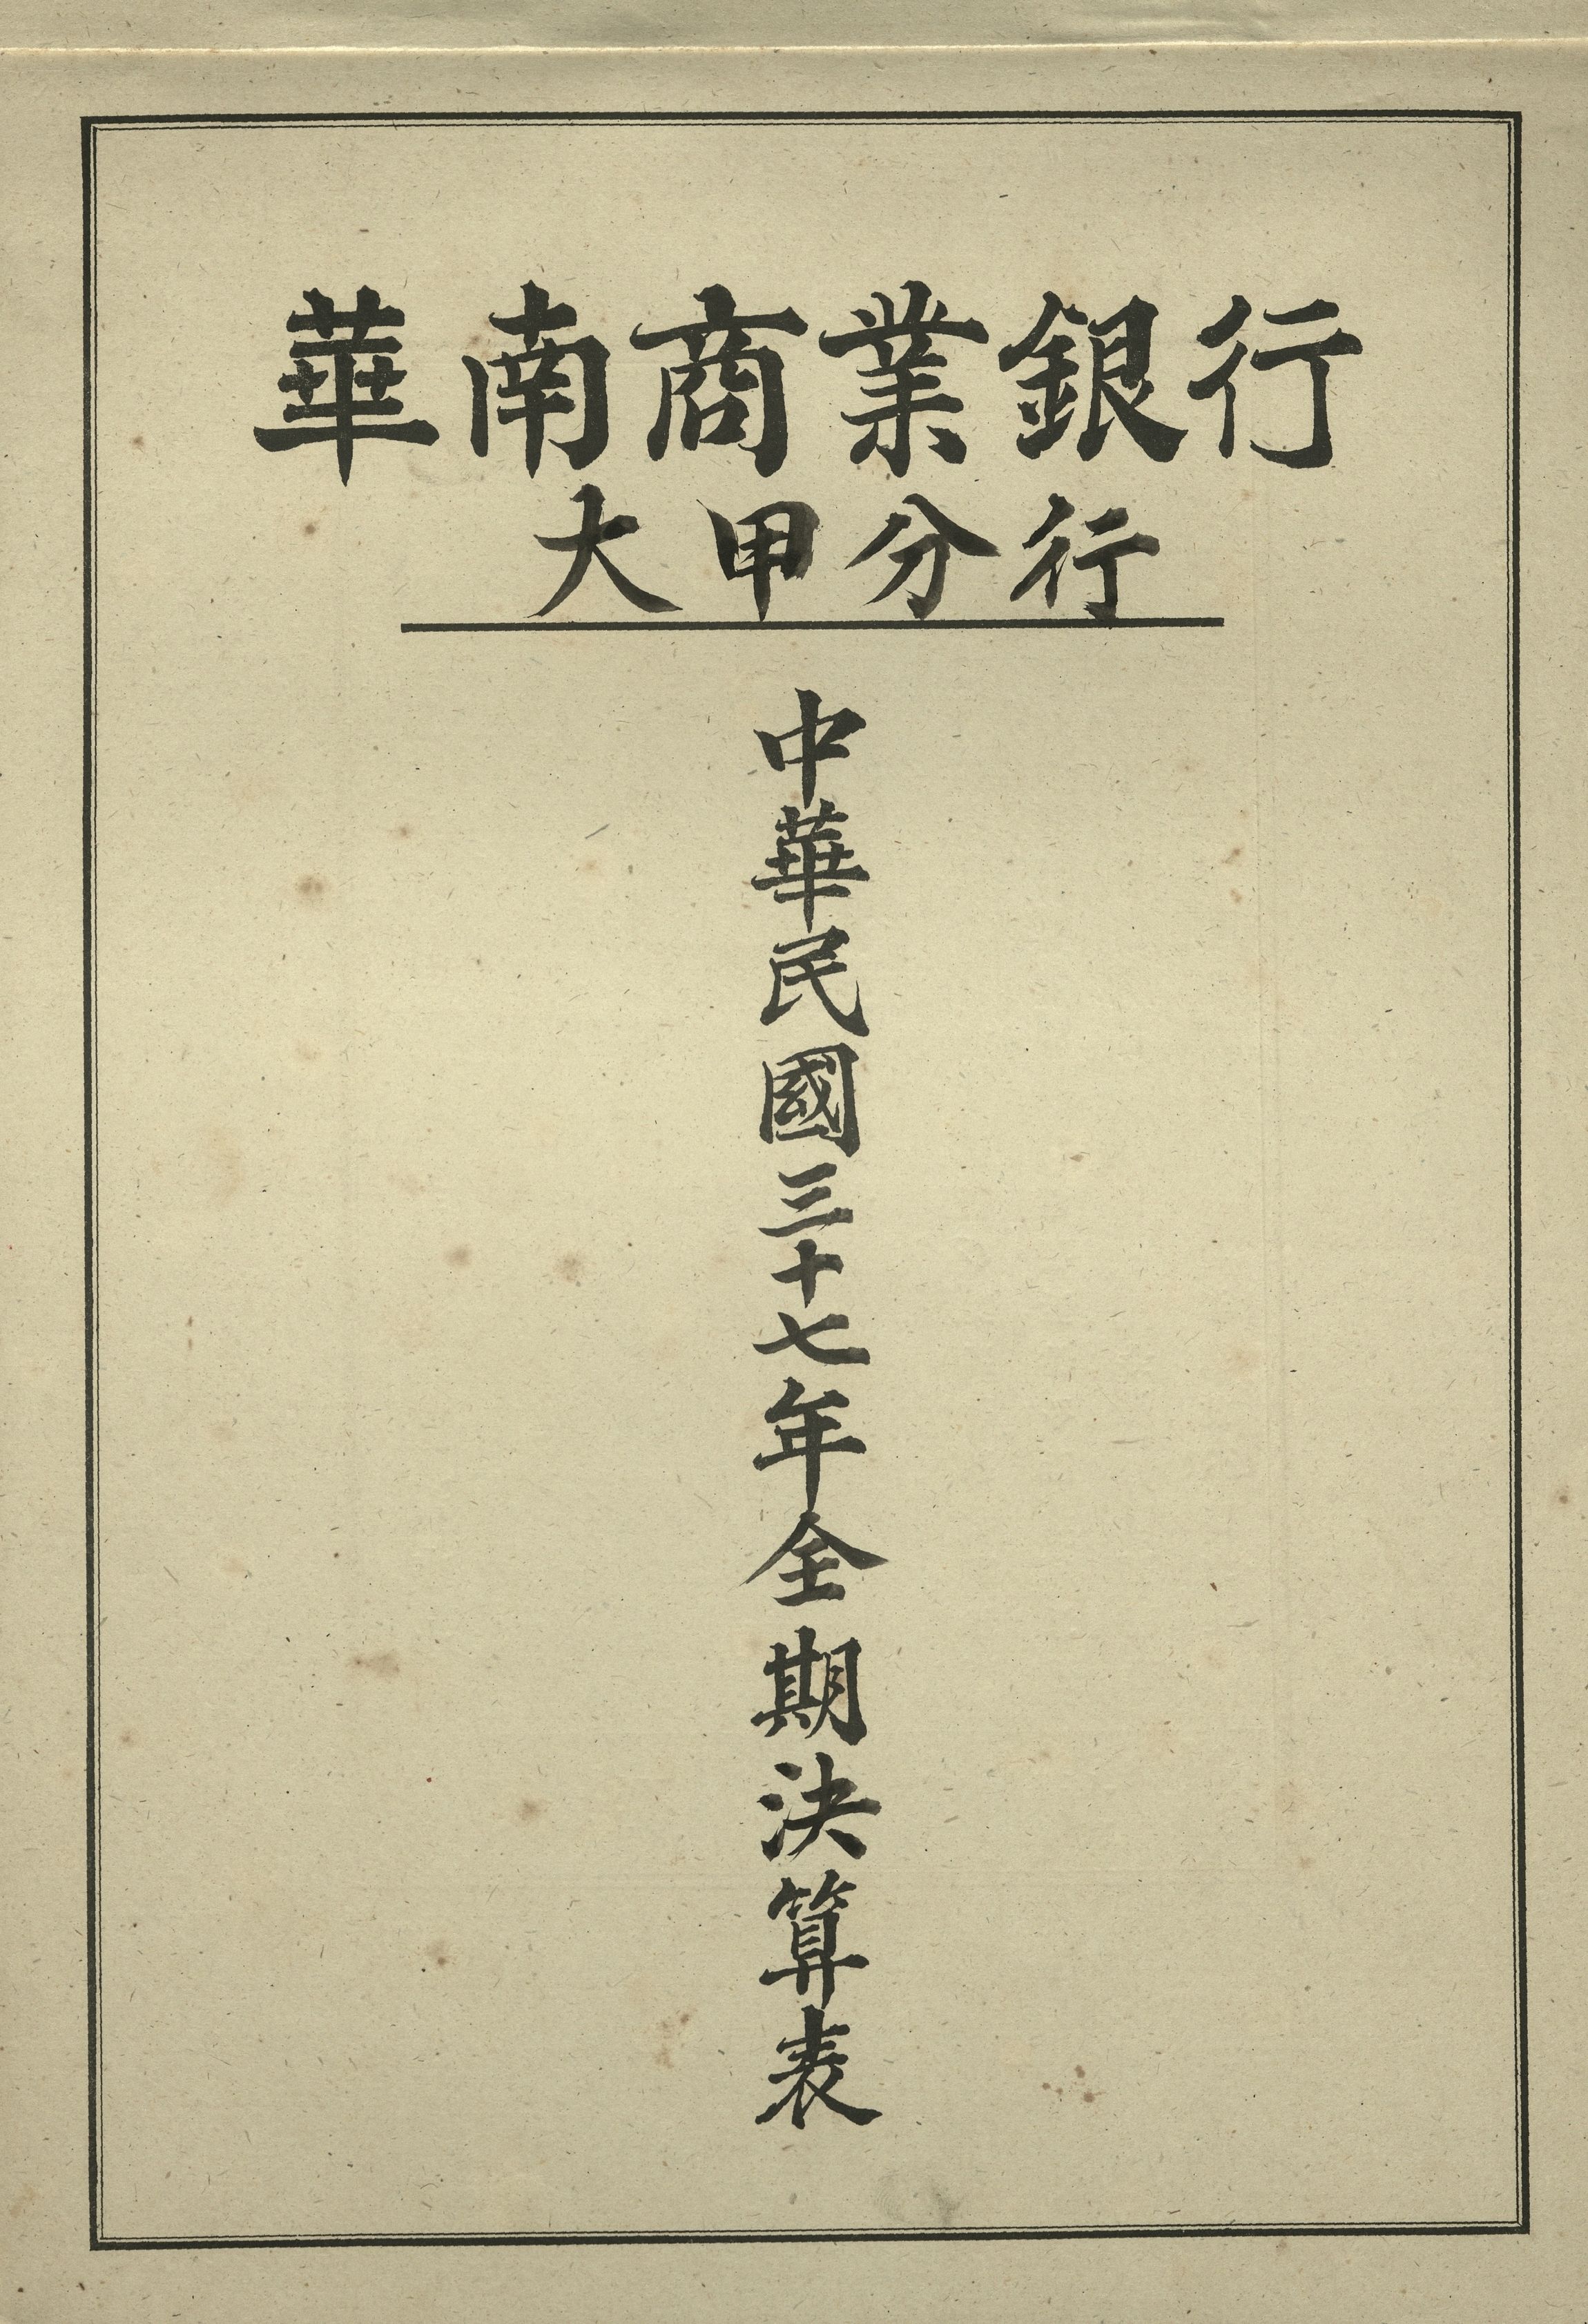 華南商業銀行
大甲分行
中華民國三十七年全期決算表